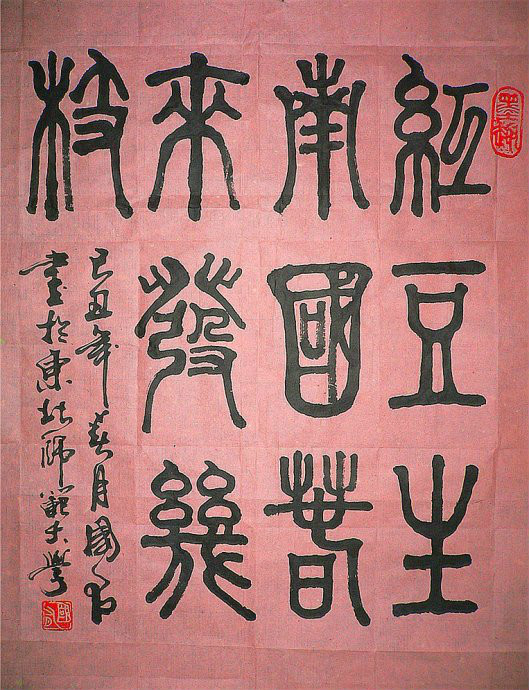 紅豆生
南國春
來發幾
枝
己丑年春月國
書於東北師範大學